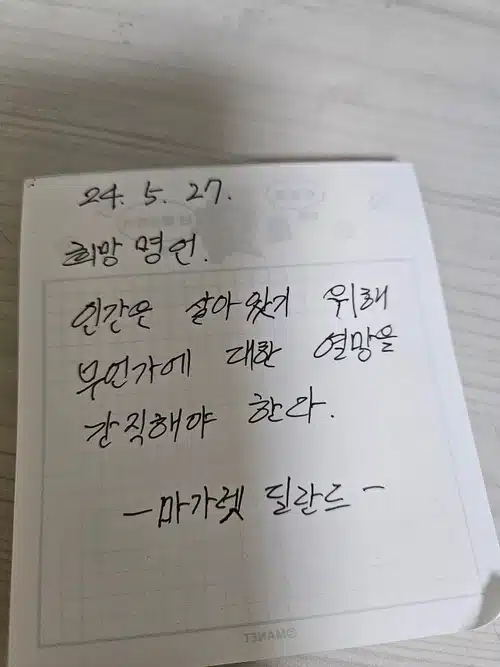 24. 5. 27.
희망 명언.
인간은 살아있기 위해
무언가에 대한 열망을
간직해야 한다.
- 마가렛 딜란드 -
©MANET